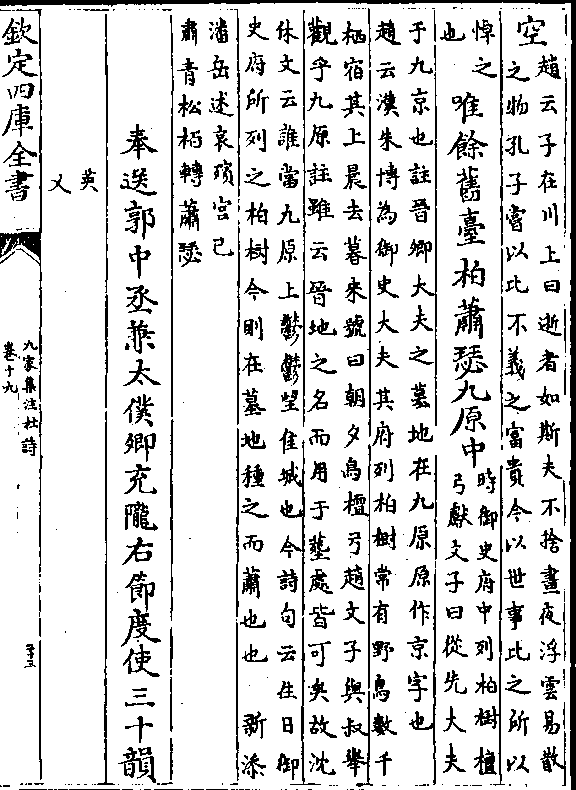 空
趙云子在川上曰逝者如斯夫不捨晝夜浮雲易散
之物孔子嘗以比不義之富貴今以世事比之所以
悼之
也
唯餘舊臺柏蕭瑟九原中
時御史府中列柏樹檀
弓獻文子曰從先大夫
于九京也註晉卿大夫之墓地在九原原作京字也
趙云漢朱博為御史大夫其府列柏樹常有野鳥數千
栖宿其上晨去暮來號曰朝夕鳥檀弓趙文子與叔譽
觀乎九原註雖云晉地之名而用于墓處皆可矣故沈
休文云誰當九原上鬱鬱望佳城也今詩句云往日御
史府所列之柏樹今則在墓地種之而蕭也也 新添
潘岳述哀殯宮已
肅青松朽轉蕭瑟
奉送郭中丞兼太僕卿充隴右節度使三十韻
英
乂
欽定四庫全書
九家集注杜詩
卷十九